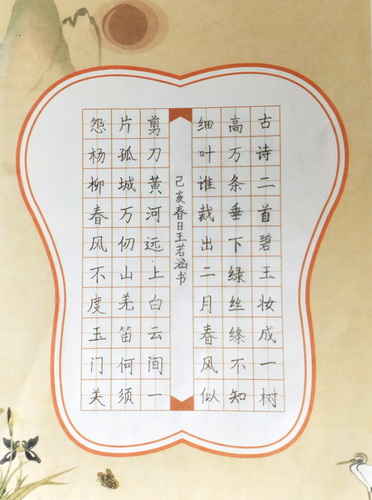 古诗二首碧玉妆成一树
高万条垂下绿丝绦不知
细叶谁裁出二月春风似
己亥春日王若涵书
剪刀黄河远上白云间一
片孤城万仞山羌笛何须
怨杨柳春风不度玉门关